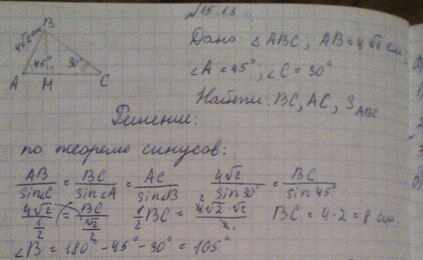 №15.13.
B
4√2 см
45°
30°
A H C
Дано: ∠ABC; AB=4√2 см.
∠A=45°; ∠C=30°
Найти: BC, AC, S ABC
Решение:
по теореме синусов:
AB/sin∠C = BC/sin∠A = AC/sin∠B 4√2/sin30° = BC/sin45°
4√2/(1/2) = BC/(√2/2) 1/2 BC = 4√2·√2/2 BC = 4·2 = 8 см.
∠B = 180° - 45° - 30° = 105°